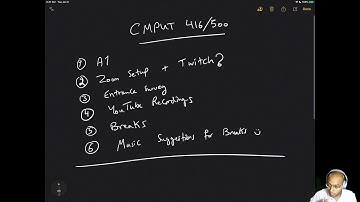 CMPUT 416/500
① A1
② Zoom Setup + Twitch?
③ Entrance Survey
④ YouTube Recordings
⑤ Breaks
⑥ Music Suggestions for Breaks